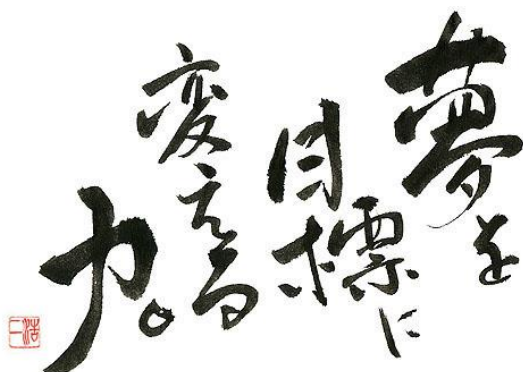 夢を
目標に
変える
力。
浩二